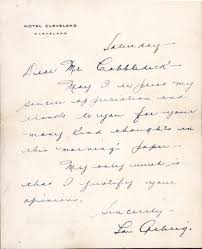 HOTEL CLEVELAND
CLEVELAND
Saturday
Dear Mr. Cobbledick
May I express my
sincere appreciation and
thanks to you for your
many kind thoughts in
this morning's paper.
My only wish is
that I justify your
opinions.
Sincerely
Lou Gehrig